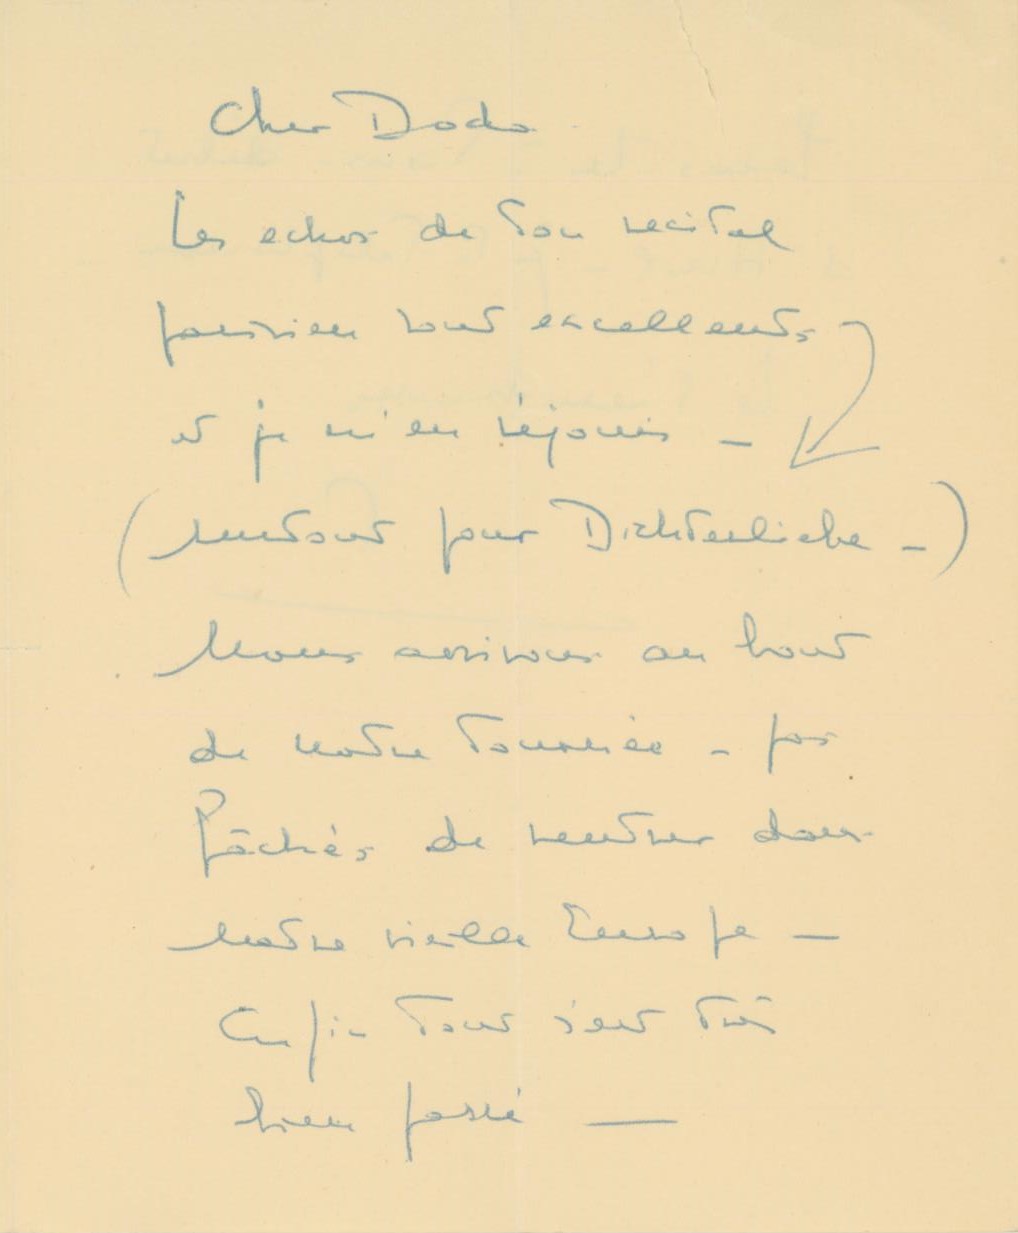 Cher Dodo
Les echos de ton recital
parisien sont excellents
et je m'en réjouis –
(surtout pour Dichterliebe –)
Nous arrivons au bout
de notre tournée – pas
fâchés de rentrer dans
notre vieille Europe –
Enfin tout s'est très
bien passé —